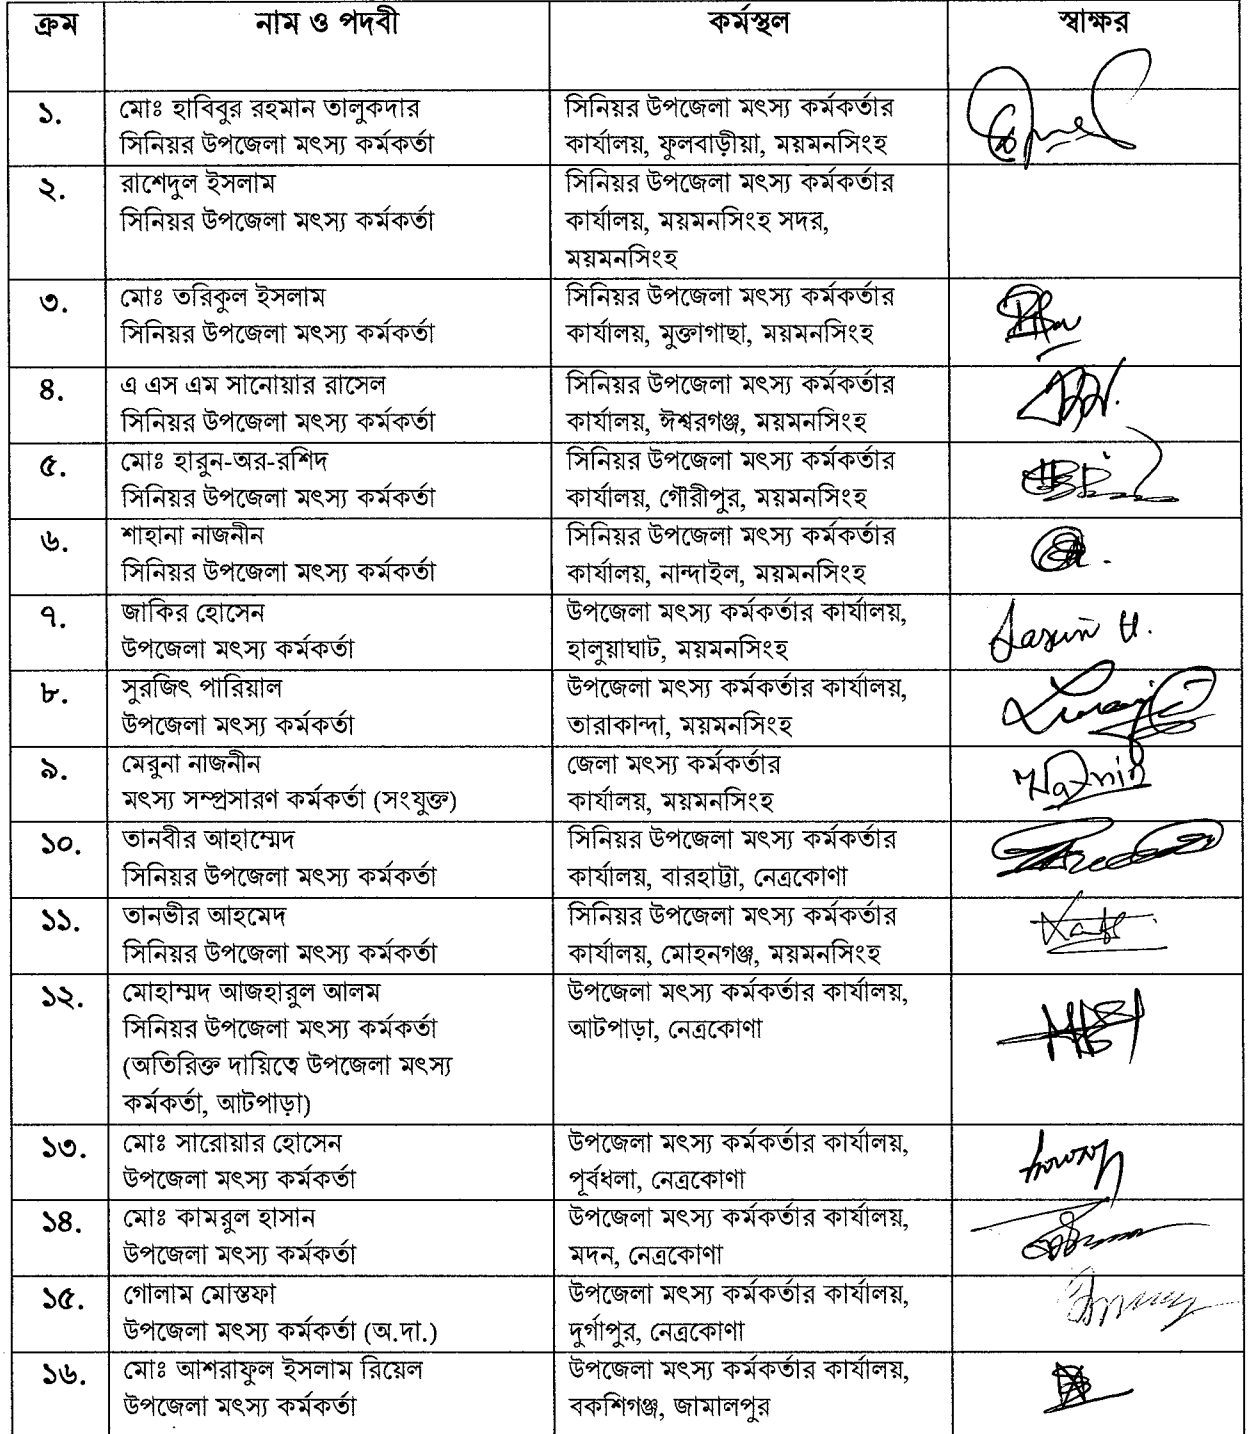 ক্রম নাম ও পদবী কর্মস্থল স্বাক্ষর
১. মোঃ হাবিবুর রহমান তালুকদার সিনিয়র উপজেলা মৎস্য কর্মকর্তার
সিনিয়র উপজেলা মৎস্য কর্মকর্তা কার্যালয়, ফুলবাড়ীয়া, ময়মনসিংহ
২. রাশেদুল ইসলাম সিনিয়র উপজেলা মৎস্য কর্মকর্তার
সিনিয়র উপজেলা মৎস্য কর্মকর্তা কার্যালয়, ময়মনসিংহ সদর,
ময়মনসিংহ
৩. মোঃ তরিকুল ইসলাম সিনিয়র উপজেলা মৎস্য কর্মকর্তার
সিনিয়র উপজেলা মৎস্য কর্মকর্তা কার্যালয়, মুক্তাগাছা, ময়মনসিংহ
৪. এ এস এম সানোয়ার রাসেল সিনিয়র উপজেলা মৎস্য কর্মকর্তার
সিনিয়র উপজেলা মৎস্য কর্মকর্তা কার্যালয়, ঈশ্বরগঞ্জ, ময়মনসিংহ
৫. মোঃ হারুন-অর-রশিদ সিনিয়র উপজেলা মৎস্য কর্মকর্তার
সিনিয়র উপজেলা মৎস্য কর্মকর্তা কার্যালয়, গৌরীপুর, ময়মনসিংহ
৬. শাহানা নাজনীন সিনিয়র উপজেলা মৎস্য কর্মকর্তার
সিনিয়র উপজেলা মৎস্য কর্মকর্তা কার্যালয়, নান্দাইল, ময়মনসিংহ
৭. জাকির হোসেন উপজেলা মৎস্য কর্মকর্তার কার্যালয়,
উপজেলা মৎস্য কর্মকর্তা হালুয়াঘাট, ময়মনসিংহ
৮. সুরজিৎ পারিয়াল উপজেলা মৎস্য কর্মকর্তার কার্যালয়,
উপজেলা মৎস্য কর্মকর্তা তারাকান্দা, ময়মনসিংহ
৯. মেরুনা নাজনীন জেলা মৎস্য কর্মকর্তার
মৎস্য সম্প্রসারণ কর্মকর্তা (সংযুক্ত) কার্যালয়, ময়মনসিংহ
১০. তানবীর আহাম্মেদ সিনিয়র উপজেলা মৎস্য কর্মকর্তার
সিনিয়র উপজেলা মৎস্য কর্মকর্তা কার্যালয়, বারহাট্টা, নেত্রকোণা
১১. তানভীর আহমেদ সিনিয়র উপজেলা মৎস্য কর্মকর্তার
সিনিয়র উপজেলা মৎস্য কর্মকর্তা কার্যালয়, মোহনগঞ্জ, ময়মনসিংহ
১২. মোহাম্মদ আজহারুল আলম উপজেলা মৎস্য কর্মকর্তার কার্যালয়,
সিনিয়র উপজেলা মৎস্য কর্মকর্তা আটপাড়া, নেত্রকোণা
(অতিরিক্ত দায়িত্বে উপজেলা মৎস্য
কর্মকর্তা, আটপাড়া)
১৩. মোঃ সারোয়ার হোসেন উপজেলা মৎস্য কর্মকর্তার কার্যালয়,
উপজেলা মৎস্য কর্মকর্তা পূর্বধলা, নেত্রকোণা
১৪. মোঃ কামরুল হাসান উপজেলা মৎস্য কর্মকর্তার কার্যালয়,
উপজেলা মৎস্য কর্মকর্তা মদন, নেত্রকোণা
১৫. গোলাম মোস্তফা উপজেলা মৎস্য কর্মকর্তার কার্যালয়,
উপজেলা মৎস্য কর্মকর্তা (অ.দা.) দুর্গাপুর, নেত্রকোণা
১৬. মোঃ আশরাফুল ইসলাম রিয়েল উপজেলা মৎস্য কর্মকর্তার কার্যালয়,
উপজেলা মৎস্য কর্মকর্তা বকশিগঞ্জ, জামালপুর